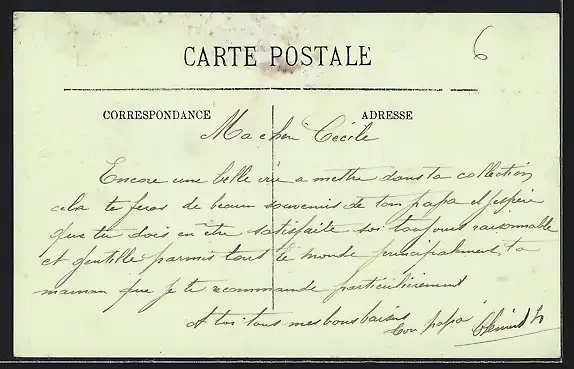 6
CARTE POSTALE
CORRESPONDANCE
ADRESSE
Ma cher Cécile
Encore une belle vue a mettre dans ta collection
cela te feras de beaux souvenis de ton papa et j'espère
que tu dois en être satisfaite soi toujours raisonnable
et gentille parmis tout le monde principalement ta
maman que je te recommande particulièrement
A toi tous mes bons baisers
ton papa